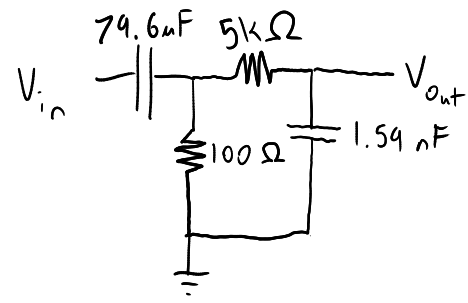 79.6uF
5kΩ
Vin
Vout
100 Ω
1.59 nF